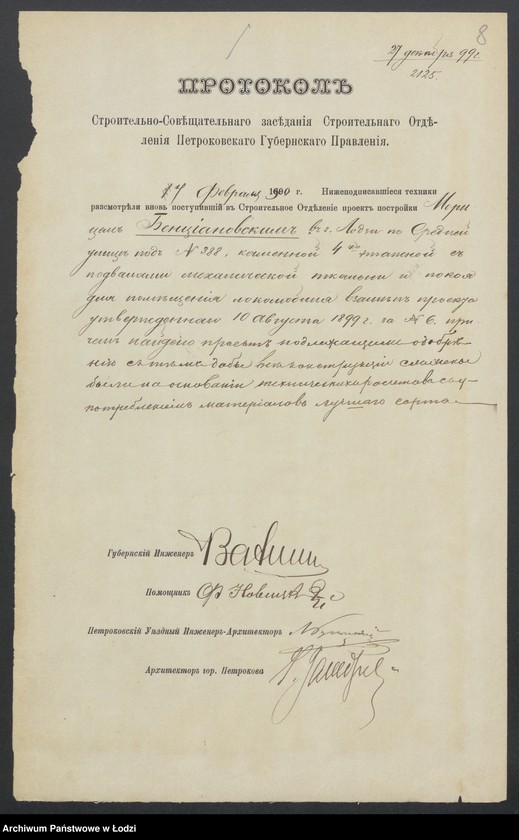 8
27 декабря 99 г.
2125.
ПРОТОКОЛЪ
Строительно-Совѣщательнаго засѣданія Строительнаго Отдѣ-
ленія Петроковскаго Губернскаго Правленія.
17 Февраля 1900 г. Нижеподписавшіеся техники
разсмотрѣли вновь поступившій въ Строительное Отдѣленіе проектъ постройки Мори
цемъ Бенціановскимъ въ г. Лодзи по Средней
улицѣ подъ № 388, каменной 4 этажной съ
подвалами механической ткальни и покоя
для помѣщенія локомобиля взамѣнъ проекта
утвержденнаго 10 Августа 1899 г. за № 6, при
чемъ найдено проектъ подлежащимъ одобре
нію съ тѣмъ дабы всѣ конструкціи
были на основаніи техническихъ разсчетовъ съ у-
потребленіемъ матеріаловъ лучшаго сорта
Губернскій Инженеръ
Помощникъ
Петроковскій Уѣздный Инженеръ-Архитекторъ
Архитекторъ гор. Петрокова
Archiwum Państwowe w Łodzi